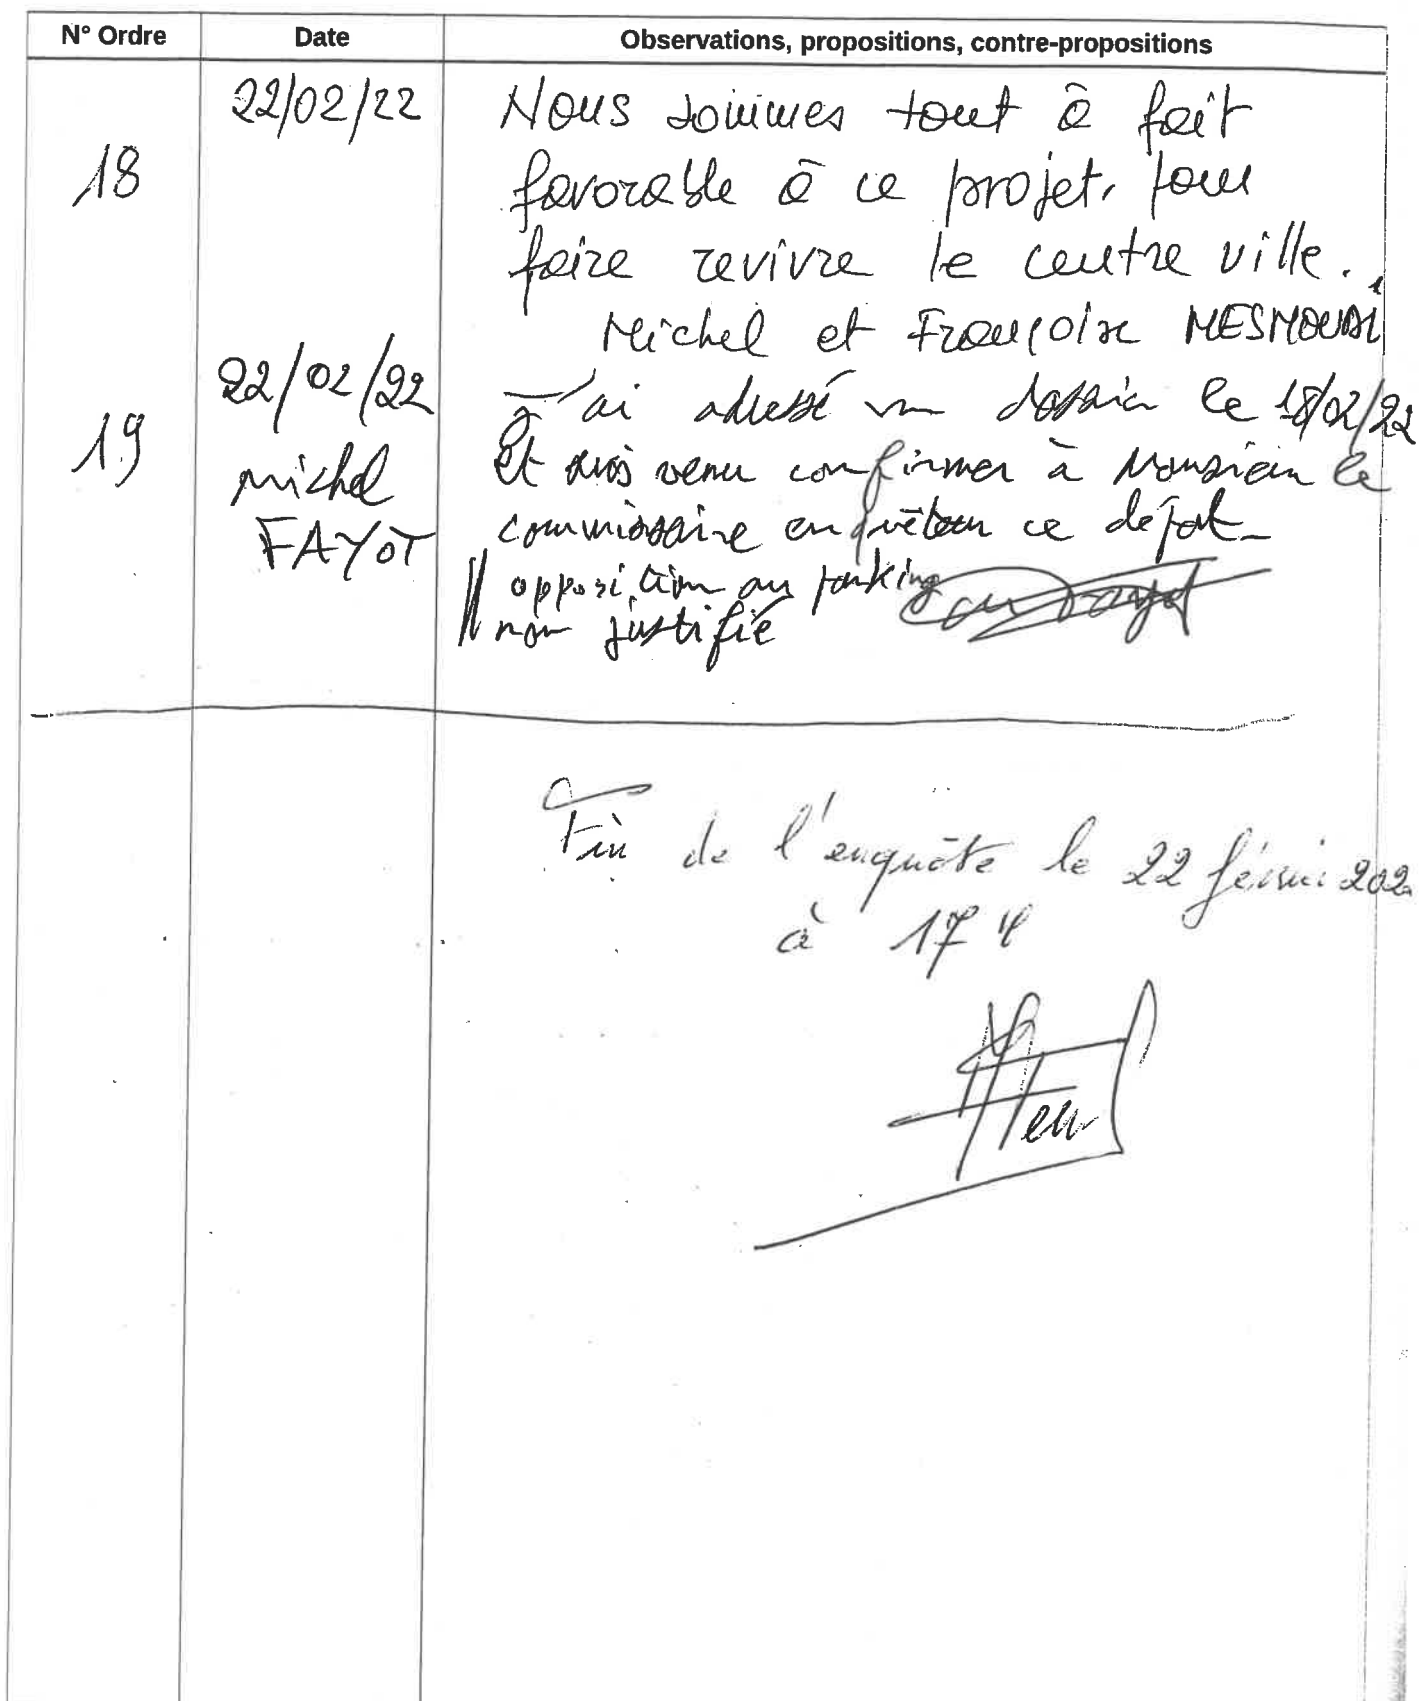 N° Ordre Date Observations, propositions, contre-propositions
18 22/02/22 Nous sommes tout à fait
favorable à ce projet, pour
faire revivre le centre ville.
Michel et Françoise
19 22/02/22 J'ai adressé un dossier le 18/02/22
michel et suis venu confirmer à Monsieur le
FAYOT commissaire enquêteur ce dépôt
opposition au parking
non justifié
Fin de l'enquête le 22 février 202
à 17 H